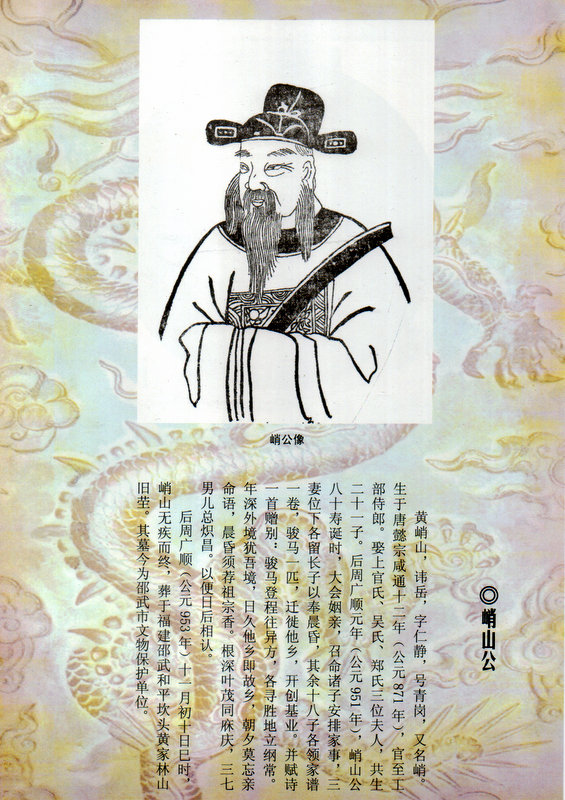 峭公像
◎峭山公
黄峭山，讳岳，字仁静，号青岗，又名峭。
生于唐懿宗咸通十二年（公元871年），官至工
部侍郎。娶上官氏、吴氏、郑氏三位夫人，共生
二十一子。后周广顺元年（公元951年），峭山公
八十寿诞时，大会姻亲，召命诸子安排家事，三
妻位下各留长子以奉晨昏，其余十八子各领家谱
一卷，骏马一匹，迁徙他乡，开创基业。并赋诗
一首赠别：骏马登程往异方，各寻胜地立纲常。
年深外境犹吾境，日久他乡即故乡，朝夕莫忘亲
命语，晨昏须荐祖宗香。根深叶茂同庥庆，三七
男儿总炽昌。以便日后相认。
后周广顺（公元953年）十一月初十日巳时，
峭山无疾而终，葬于福建邵武和平坎头黄家林山
旧茔。其墓今为邵武市文物保护单位。